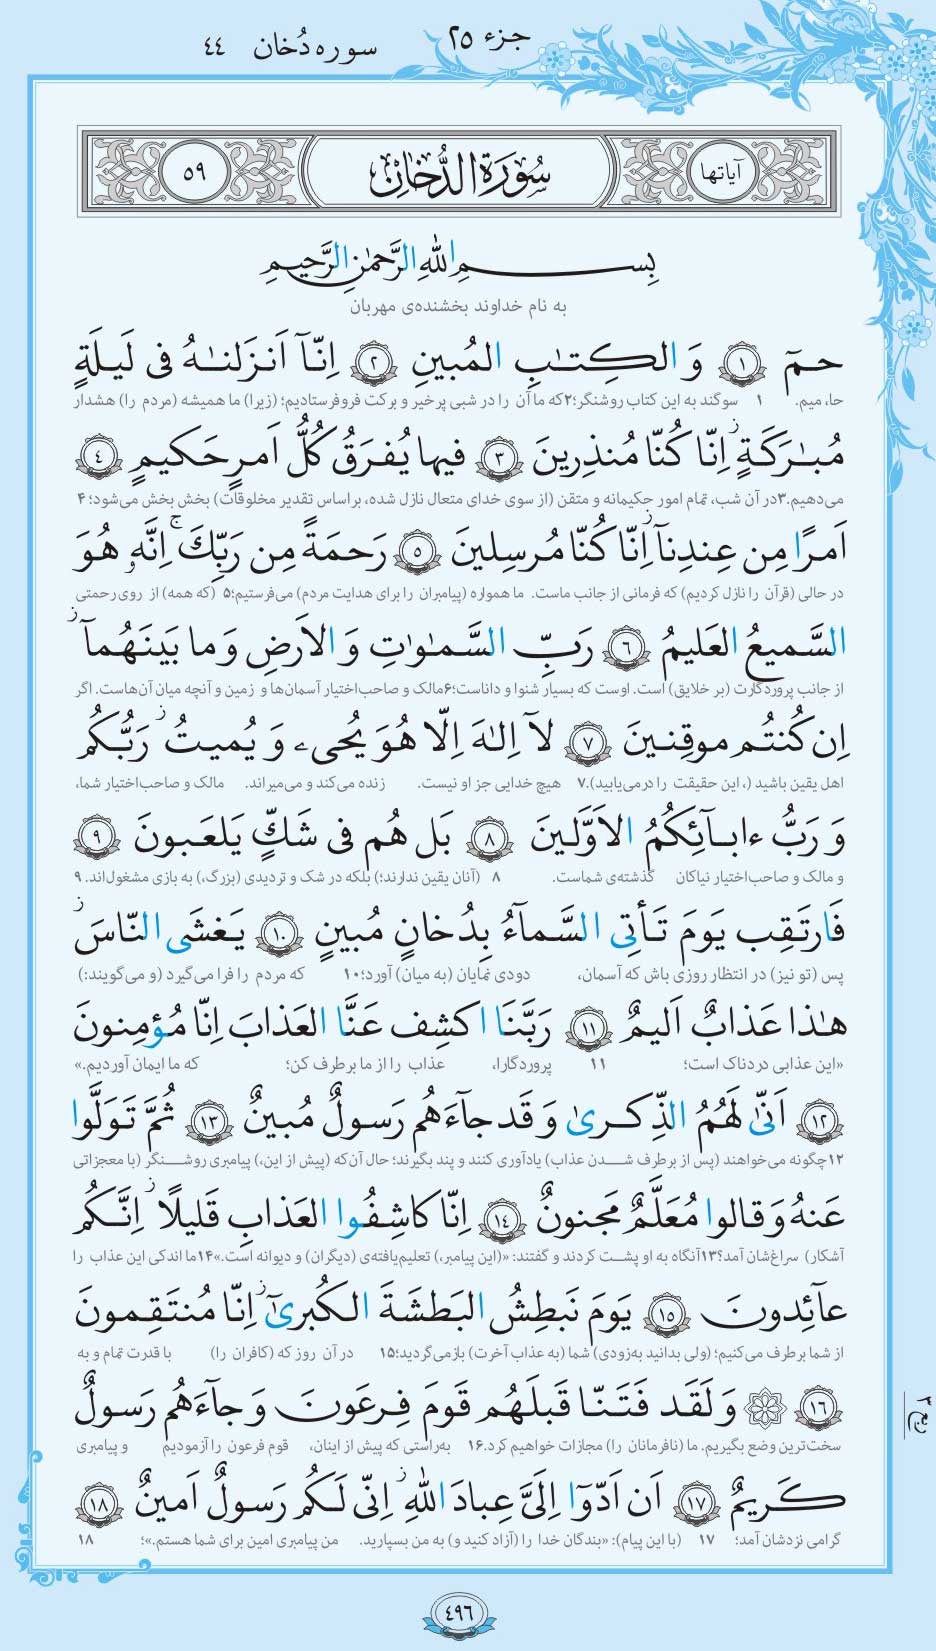 جزء ۲۵
سوره دُخان ۴۴
آیاتها سُورَةُ الدُّخانِ ۵۹
بِسمِ اللهِ الرَّحمٰنِ الرَّحيمِ
به نام خداوند بخشنده‌ی مهربان
حمٓ ۱ وَ الكِتٰبِ المُبينِ ۲ اِنّآ اَنزَلنٰهُ فى لَيلَةٍ
حا، میم. ۱ سوگند به این کتاب روشنگر؛۲که ما آن را در شبی پرخیر و برکت فروفرستادیم؛ (زیرا) ما همیشه (مردم را) هشدار
مُبٰرَكَةٍ ز اِنّا كُنّا مُنذِرينَ ۳ فيها يُفرَقُ كُلُّ اَمرٍ حَكيمٍ ۴
می‌دهیم.۳در آن شب، تمام امور حکیمانه و متقن (از سوی خدای متعال نازل شده، براساس تقدیر مخلوقات) بخش بخش می‌شود؛ ۴
اَمرًا مِن عِندِنآ ز اِنّا كُنّا مُرسِلينَ ۵ رَحمَةً مِن رَبِّكَ ج اِنَّهٗ هُوَ
در حالی (قرآن را نازل کردیم) که فرمانی از جانب ماست. ما همواره (پیامبران را برای هدایت مردم) می‌فرستیم؛۵ (که همه) از روی رحمتی
السَّميعُ العَليمُ ۶ رَبِّ السَّمٰوٰتِ وَ الاَرضِ وَ ما بَينَهُمآ ز
از جانب پروردگارت (بر خلایق) است. اوست که بسیار شنوا و داناست؛۶مالک و صاحب‌اختیار آسمان‌ها و زمین و آنچه میان آن‌هاست. اگر
اِن كُنتُم موقِنينَ ۷ لآ اِلٰهَ اِلّا هُوَ يُحيىۦ وَ يُميتُ ز رَبُّكُم
اهل یقین باشید (، این حقیقت را درمی‌یابید).۷ هیچ خدایی جز او نیست. زنده می‌کند و می‌میراند. مالک و صاحب‌اختیار شما،
وَ رَبُّ ءابآئِكُمُ الاَوَّلينَ ۸ بَل هُم فى شَكٍّ يَلعَبونَ ۹
و مالک و صاحب‌اختیار نیاکان گذشته‌ی شماست. ۸ (آنان یقین ندارند؛) بلکه در شک و تردیدی (بزرگ،) به بازی مشغول‌اند. ۹
فَارتَقِب يَومَ تَأتِى السَّمآءُ بِدُخانٍ مُبينٍ ۱۰ يَغشَى النّاسَ ز
پس (تو نیز) در انتظار روزی باش که آسمان، دودی نمایان (به میان) آورد؛۱۰ که مردم را فرا می‌گیرد (و می‌گویند:)
هٰذا عَذابٌ اَليمٌ ۱۱ رَبَّنَا اكشِف عَنَّا العَذابَ اِنّا مُؤمِنونَ
«این عذابی دردناک است؛ ۱۱ پروردگارا، عذاب را از ما برطرف کن؛ که ما ایمان آوردیم.»
۱۲ اَنّىٰ لَهُمُ الذِّكرىٰ وَ قَد جآءَهُم رَسولٌ مُبينٌ ۱۳ ثُمَّ تَوَلَّوا
۱۲چگونه می‌خواهند (پس از برطرف شدن عذاب) یادآوری کنند و پند بگیرند؛ حال آن‌که (پیش از این،) پیامبری روشنگر (با معجزاتی
عَنهُ وَ قالوا مُعَلَّمٌ مَجنونٌ ۱۴ اِنّا كاشِفُوا العَذابِ قَليلًا ز اِنَّكُم
آشکار) سراغ‌شان آمد؟۱۳آنگاه به او پشت کردند و گفتند: «(این پیامبر،) تعلیم‌یافته‌ی (دیگران) و دیوانه است.»۱۴ما اندکی این عذاب را
عآئِدونَ ۱۵ يَومَ نَبطِشُ البَطشَةَ الكُبرىٰٓ ز اِنّا مُنتَقِمونَ
از شما برطرف می‌کنیم؛ (ولی بدانید به‌زودی) شما (به عذاب آخرت) بازمی‌گردید؛۱۵ در آن روز که (کافران را) با قدرت تمام و به
۱۶ وَ لَقَد فَتَنّا قَبلَهُم قَومَ فِرعَونَ وَ جآءَهُم رَسولٌ
سخت‌ترین وضع بگیریم. ما (نافرمانان را) مجازات خواهیم کرد.۱۶ به‌راستی که پیش از اینان، قوم فرعون را آزمودیم و پیامبری
كَريمٌ ۱۷ اَن اَدّوٓا اِلَىَّ عِبادَ اللهِ ز اِنّى لَكُم رَسولٌ اَمينٌ ۱۸
گرامی نزدشان آمد؛ ۱۷ (با این پیام): «بندگان خدا را (آزاد کنید و) به من بسپارید. من پیامبری امین برای شما هستم.»؛ ۱۸
۴۹۶